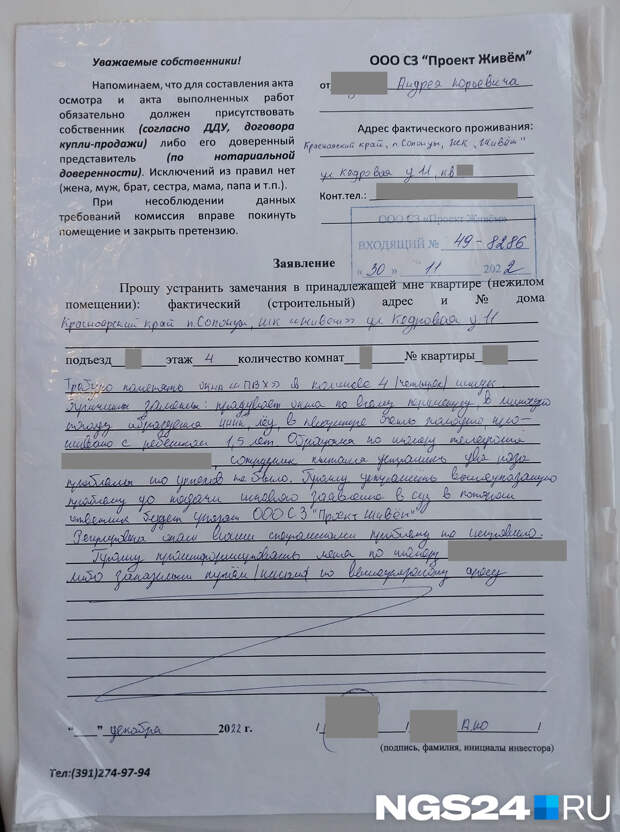 Уважаемые собственники!
Напоминаем, что для составления акта
осмотра и акта выполненных работ
обязательно должен присутствовать
собственник (согласно ДДУ, договора
купли-продажи) либо его доверенный
представитель (по нотариальной
доверенности). Исключений из правил нет
(жена, муж, брат, сестра, мама, папа и т.п.).
При несоблюдении данных
требований комиссия вправе покинуть
помещение и закрыть претензию.
ООО СЗ "Проект Живём"
от Андрея Юрьевича
Адрес фактического проживания:
Красноярский край, п. Солонцы, ЖК "Живём"
ул Кедровая д 11, кв
Конт.тел.:
ООО СЗ «Проект Живём»
ВХОДЯЩИЙ № 49-8286
"30" 11 2022
Заявление
Прошу устранить замечания в принадлежащей мне квартире (нежилом
помещении): фактический (строительный) адрес и № дома
Красноярский край п. Солонцы, ЖК «Живём» ул Кедровая д 11
подъезд этаж 4 количество комнат № квартиры
Требую поменять окна «ПВХ» в количестве 4 (четырех) штук
Причины замены: продувает окна по всему периметру, в
образуется лёд, в квартире очень холодно,
с ребёнком 1,5 лет Обращался по телефона
, сотрудник пытался устранить два раза
проблемы но успехов не было. Прошу устранить вышеуказанную
проблему до подачи искового заявления в суд в котором
ответчик будет указан ООО СЗ "Проект Живём"
Регулировка окон вашими сотрудниками проблему не исправила.
Прошу проинформировать меня по номеру
либо заказным путём (письма) по вышеуказанному адресу
"__" декабря 2022 г.
/ / А.Ю /
(подпись, фамилия, инициалы инвестора)
Тел:(391)274-97-94
NGS24.RU